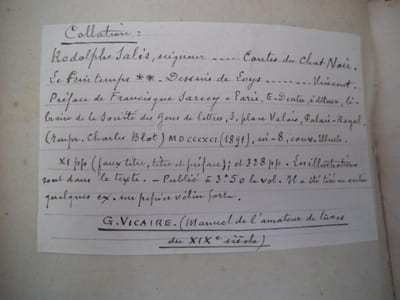 Collation:
Rodolphe Salis, seigneur ...... Contes du Chat Noir.
Le Printemps ** - Dessins de Loys ....... Vincent.
Préface de Francisque Sarcey - Paris, E. Dentu, éditeur, li-
braire de la Société des Gens de Lettres, 3, place Valois, Palais-Royal.
(Impr. Charles Blot) MDCCCXCI (1891), in-8, couv. illustr.
XI pp (faux titre, titre et préface); et 328 pp. Les illustrations
sont dans le texte. - Publié à 3f50 le vol. Il a été tiré en outre
quelques ex. sur papier vélin fort.
G. VICAIRE. (Manuel de l'amateur de livres
du XIXe siècle)